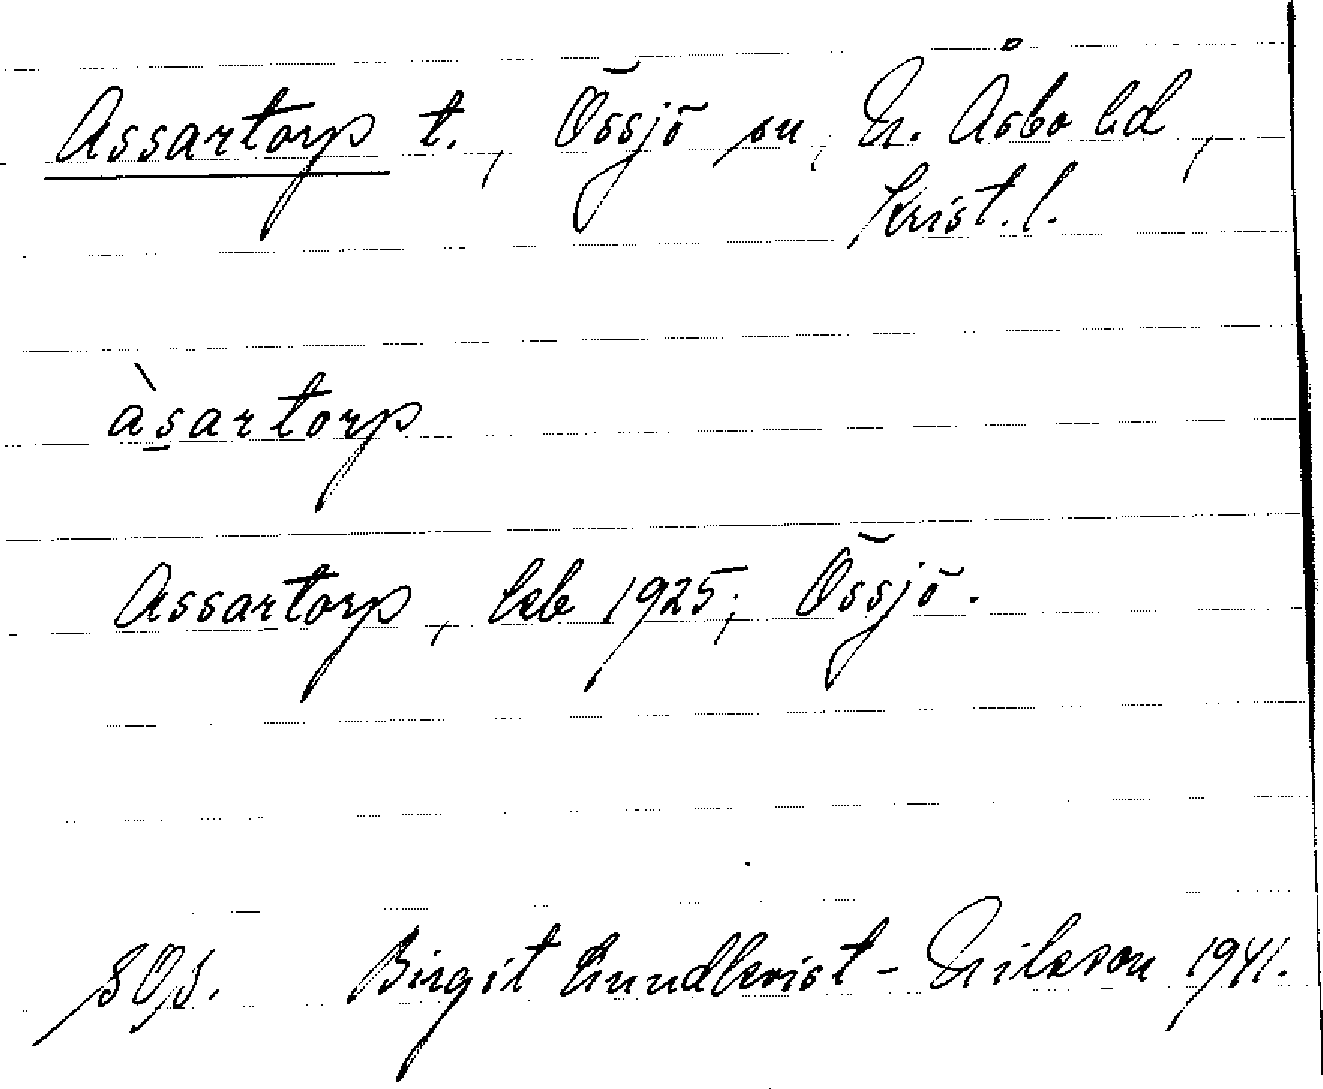 Assartorp t., Össjö sn, N. Åsbo hd,
Krist. l.
àsartorp
Assartorp, lkb 1925; Össjö.
SOS. Birgit Lundkvist-Nilsson 1941.